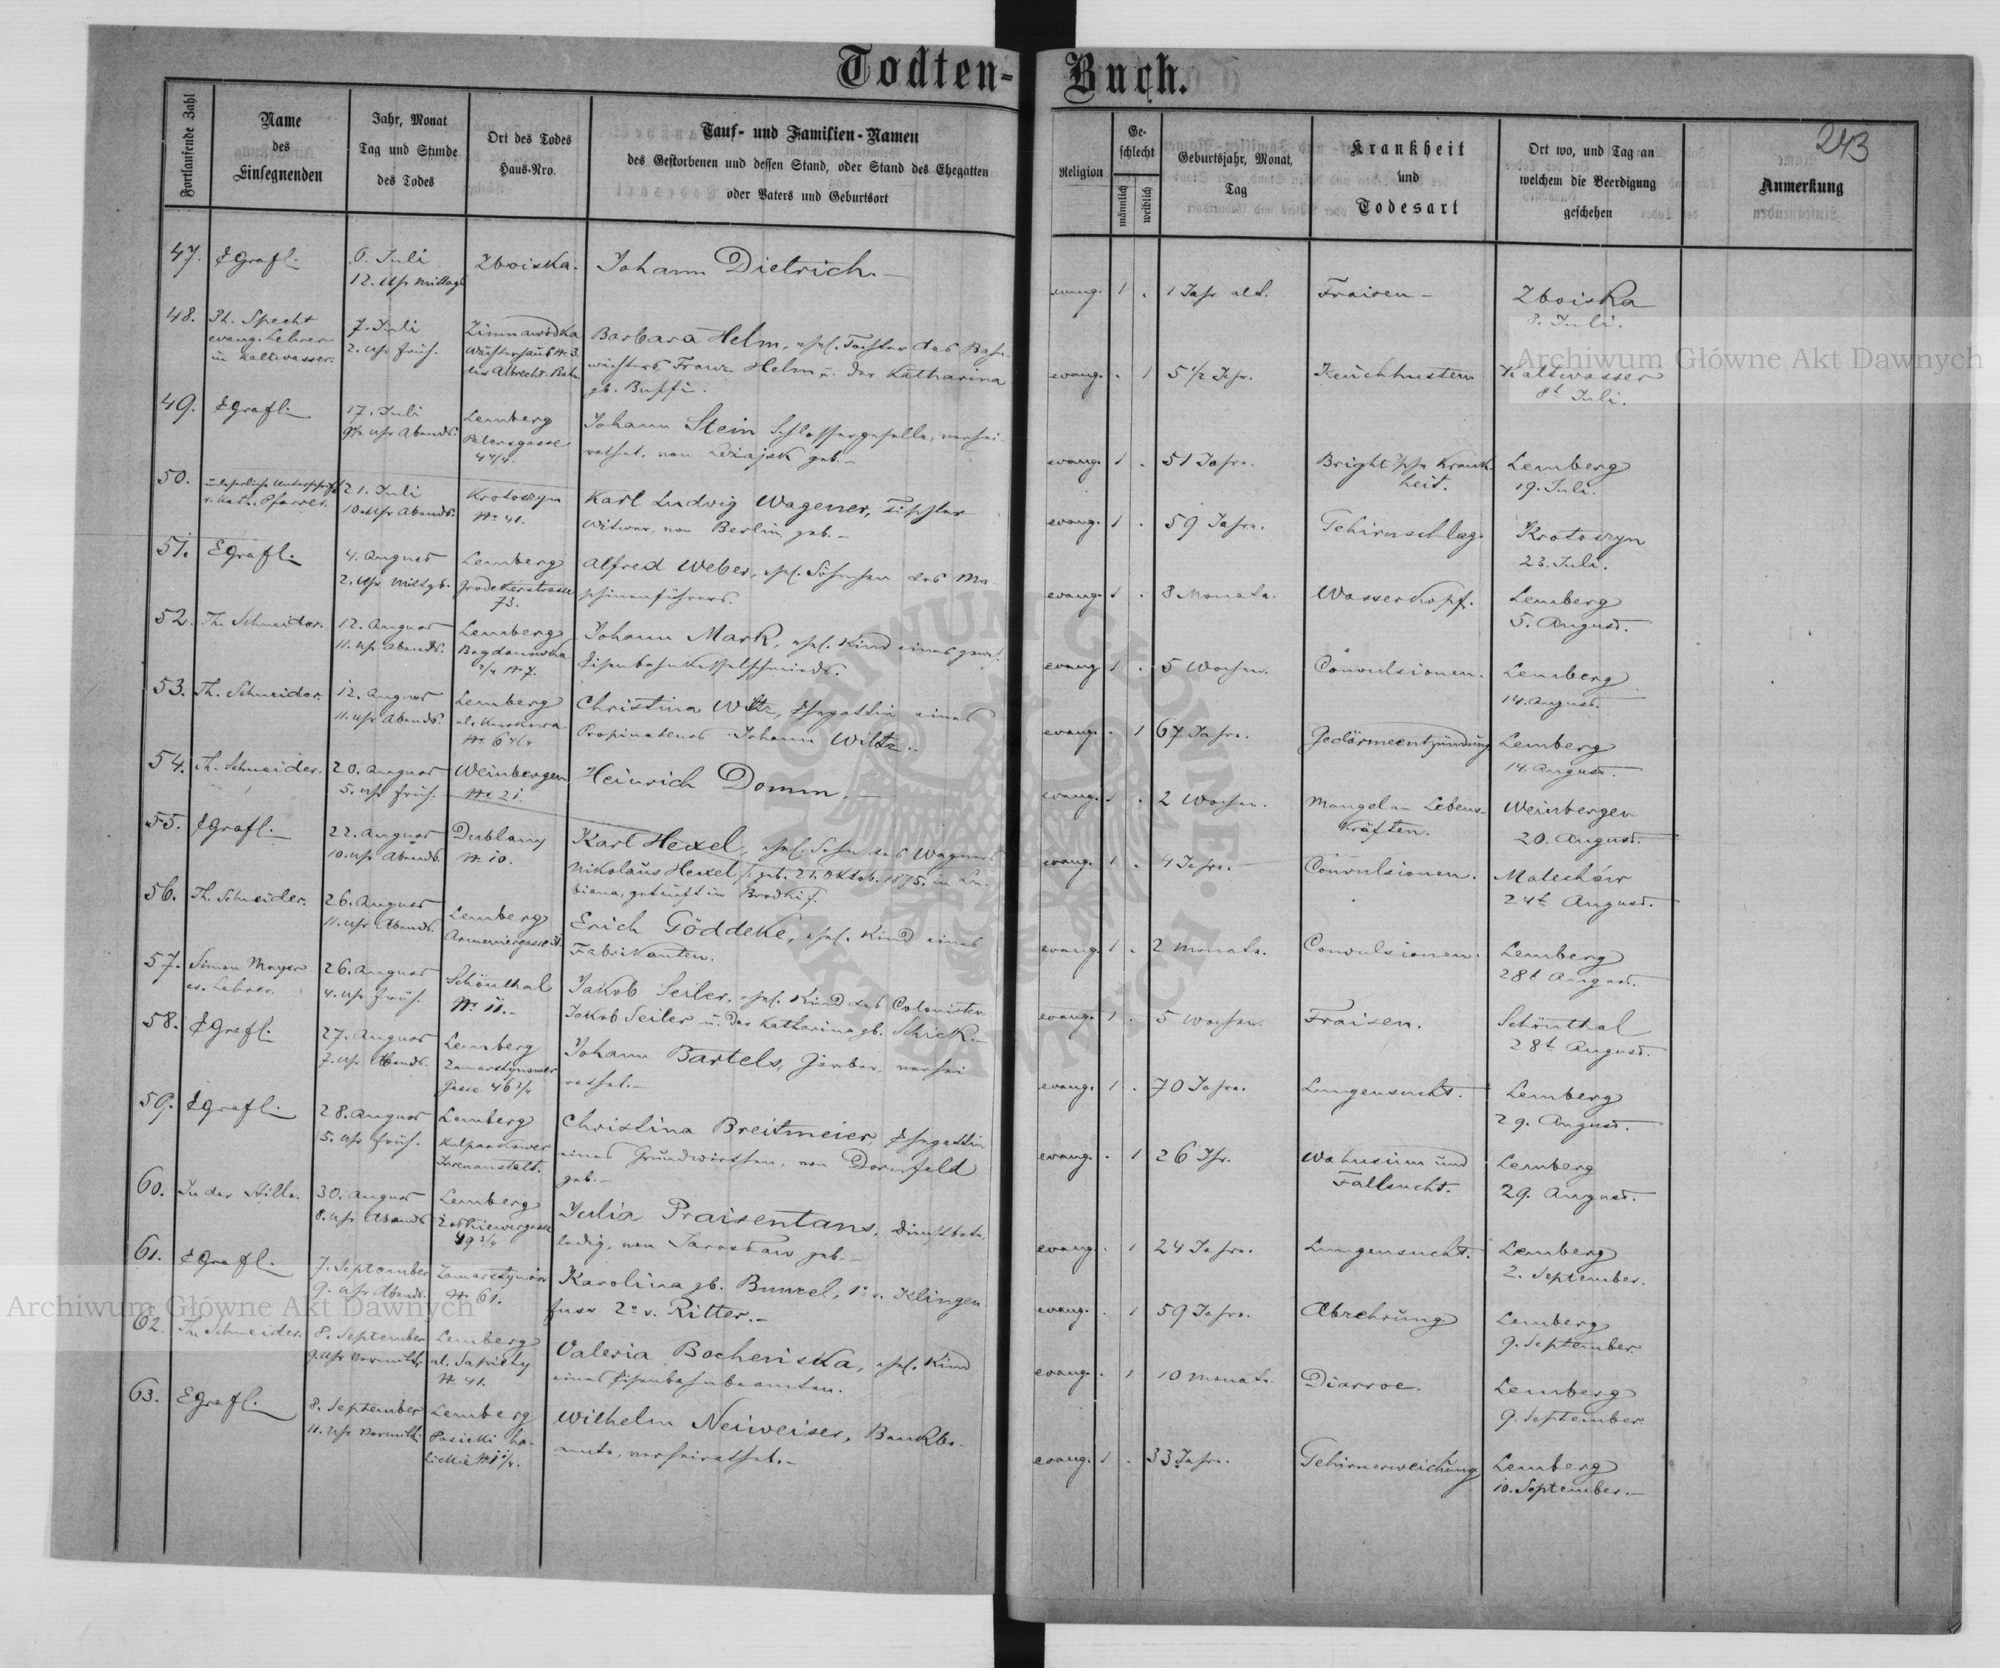 Todten-Buch.
243
Fortlaufende Zahl
Name
des
Einsegnenden
Jahr, Monat
Tag und Stunde
des Todes
Ort des Todes
Haus-Nro.
Tauf- und Familien-Namen
des Gestorbenen und dessen Stand, oder Stand des Ehegatten
oder Vaters und Geburtsort
Religion
Ge-
schlecht
männlich
weiblich
Geburtsjahr, Monat,
Tag
Krankheit
und
Todesart
Ort wo, und Tag an
welchem die Beerdigung
geschehen
Anmerkung
47.
6. Juli
12. Uhr Mittags
Zboiska.
Johann Dietrich.—
evang. 1 .
1 Jahr alt.
Fraisen —
Zboiska
8. Juli.
48. Ph. Specht
evang. Lehrer
in Kaltwasser.
7. Juli
2. Uhr früh.
Zimnawódka
Wächterhaus № 3.
der Albrecht-Bahn
Barbara Helm, ehel. Tochter des Bahn-
wächters Franz Helm u. der Katharina
evang. . 1
5 1/2 Jhr.
Keuchhusten
Kaltwasser
8t Juli.
49.
17. Juli
Uhr Abends.
Lemberg
Petersgasse
Johann Stein Schlossergeselle, verhei-
rathet, von Leżajsk geb.—
evang. 1 .
51 Jahre.
Bright'sche Krank-
heit.
Lemberg
19. Juli.
50.
unleserliche Unterschrift
r. kath. Pfarrer.
21. Juli
10. Uhr Abends.
Krotoszyn
№ 41.
Karl Ludwig Wagener, Tischler
Witwer, von Berlin geb.—
evang. 1 .
59 Jahre.
Gehirnschlag.
Krotoszyn
23. Juli.
51.
4. August
2. Uhr Mittgs.
Lemberg
Grodekerstrasse
73.
Alfred Weber, ehel. Söhnchen des Ma-
schinenführers.
evang. 1 .
8 Monate.
Wasserkopf.
Lemberg
5. August.
52. Th. Schneider.
12. August
11. Uhr Abends.
Lemberg
Bogdanowka
Johann Mark, ehel. Kind eines gewes.
Eisenbahnkesselschmieds.
evang. 1 .
5 Wochen.
Convulsionen.
Lemberg
14. August.
53. Th. Schneider.
12. August
11. Uhr Abends.
Lemberg
Christina Wiltz, Ehegattin eines
Propinatenos Johann Wiltz.
evang. . 1
67 Jahre.
Gedärmeentzündung
Lemberg
14. August.
54. Th. Schneider.
20. August
5. Uhr früh.
Weinbergen
№ 21.
Heinrich Domm.—
evang. 1 .
2 Wochen.
Mangel an Lebens-
kräften.
Weinbergen
20. August.
55.
22. August
10. Uhr Abends.
Dublany
№ 10.
Karl Hexel, ehel. Sohn des Wagners
Nikolaus Hexel, geb. 21. Oktob. 1875. in Lu-
biana, getauft in Brodki
evang. 1 .
4 Jahre.
Convulsionen.
Malechów
24t August.
56. Th. Schneider.
26. August
11. Uhr Abends.
Lemberg
Erich Göddeke, ehel. Kind eines
Fabrikanten.
evang. 1 .
2 Monate.
Convulsionen.
Lemberg
28t August.
57. Simon Mayer
ev. Lehrer.
26. August
4. Uhr früh.
Schönthal
№ 11.—
Jakob Seiler, ehel. Kind des Colonisten
Jakob Seiler u. der Katharina gb. Schick.—
evang. 1 .
5 Wochen.
Fraisen.
Schönthal
28t August.
58.
27. August
7. Uhr Abends.
Lemberg
Zamarstynower
Gasse 46 3/4
Johann Bartels, Gärber, verhei
rathet.—
evang. 1 .
70 Jahre.
Lungensucht.
Lemberg
29. August.
59.
28. August
5. Uhr früh.
Lemberg
Kulparkower
Irrenanstalt.
Christina Breitmeier, Ehegattin
eines Grundwirthen, von Dornfeld
geb.—
evang. . 1
26 Jhr.
Wahnsinn und
Fallsucht.
Lemberg
29. August.
60. In der Stille.
30. August
8. Uhr Abends
Lemberg
49 3/4
Julia Praisentans, Dienstbote,
ledig, von Jarosłau geb.—
evang. . 1
24 Jahre.
Lungensucht.
Lemberg
2. September.
61.
7. September
9. Uhr Abends.
Zamarstynów
№ 61.
Karolina gb. Bunzel, 1º v. Klingen
fuss 2º v. Ritter.—
evang. . 1
59 Jahre.
Abzehrung
Lemberg
9. September
62. Th. Schneider.
8. September
9. Uhr Vormitt.
Lemberg
ul. Sapiehy
№ 41.
Valeria Bochenska, ehel. Kind
eines Eisenbahnbeamten.
evang. . 1
10 Monate.
Diarroe.
Lemberg
9. September.
63.
8. September
11. Uhr Vormitt.
Lemberg
Wilhelm Neiweiser, Bankbe-
amte, verheirathet.—
evang. 1 .
33 Jahre.
Gehirnerweichung
Lemberg
10. September.—
Archiwum Główne Akt Dawnych
Archiwum Główne Akt Dawnych